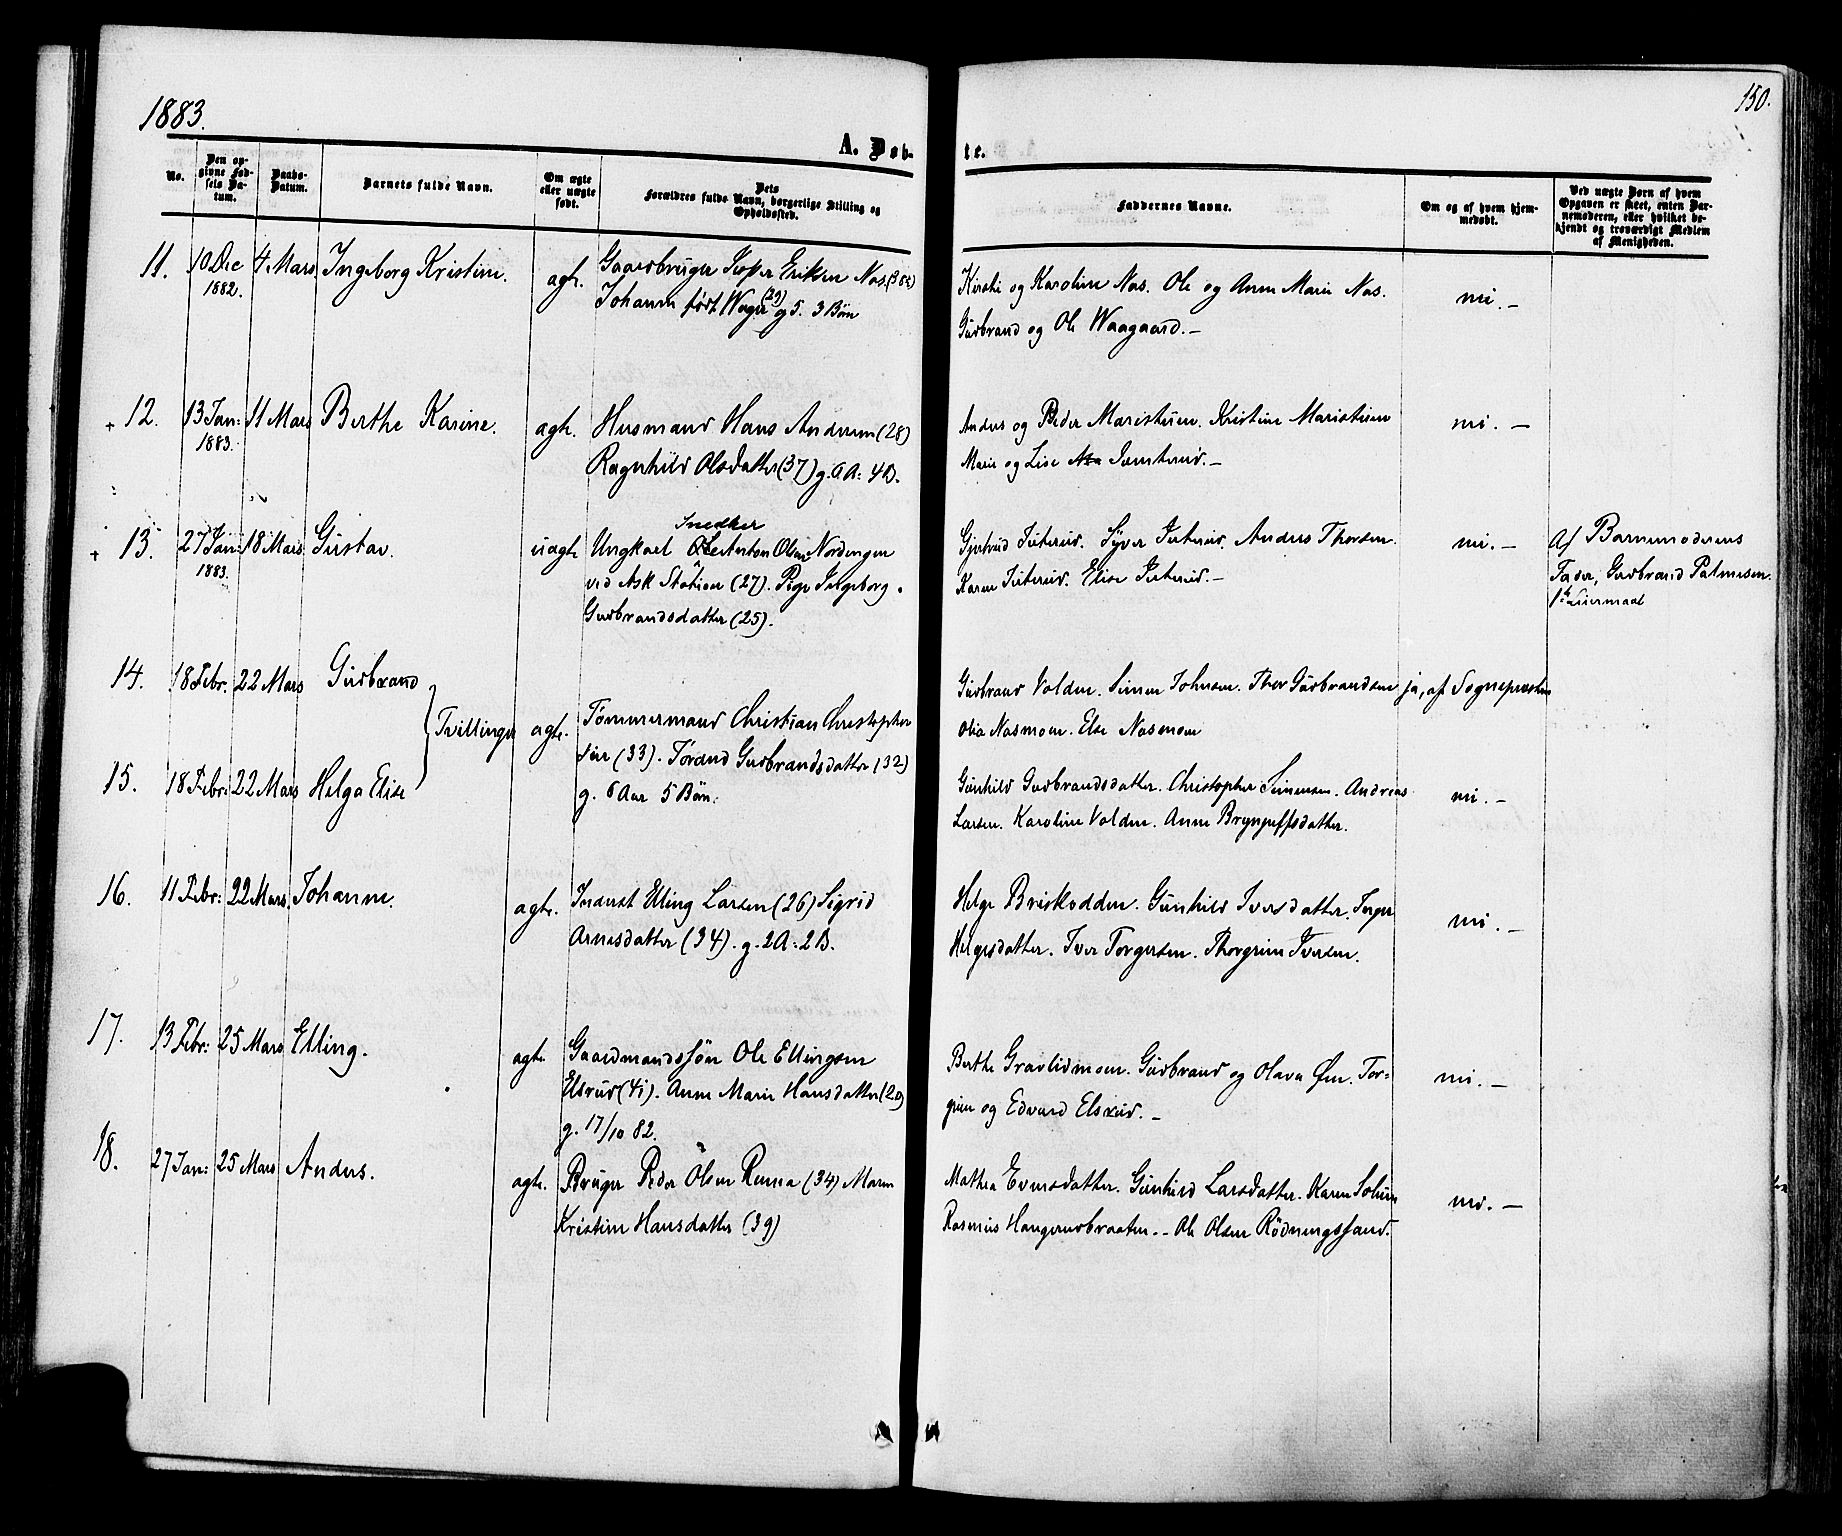 1883.
150.
A. Døb-
te.
No.
Den op-
givne Fød-
sels Da-
tum.
Daabs-
Datum.
Barnets fulde Navn.
Om ægte
eller uægte
født.
Dets
Forældres fulde Navn, borgerlige Stilling og
Opholdssted.
Faddernes Navne.
Om og af hvem hjem-
medøbt.
Ved uægte Børn af hvem
Opgaven er skeet, enten Bar-
nemoderen, eller hvilket be-
kjendt og troværdigt Medlem
af Menigheden.
11. 10 Dec 4 Mars Ingeborg Kristine. ægte. Gaardbruger Eriksen Næs.
1882. Johanne født (29) g 5. 3 Børn
Kirsti og Karoline Næs. Ole og Anne Marie Næs. nei. —
Gudbrand og Ole Waagaard. —
12. 13 Jan: 11 Mars Berthe Karine. ægte. Husmand Hans Andersen (28)
1883. Ragnhild Olsdatter (37) g. 6 A: 4 B.
Anders og Peder Maristuen. Kristine Maristuen nei. —
Marie og Lise —
13. 27 Jan: 18 Mars Gustav. uægte Ungkarl Snedker Olsen Nordengen
1883. ved Ask Station (27). Pige Ingeborg
Gudbrandsdatter (25).
Gjertrud Juterud. Syver Juterud. Anders Thorsen. nei. — Af Barnemoderens
Karen Juterud. Elise Juterud. — Fader, Gudbrand Palmesen.
1ste Leiermaal
14. 18 Febr. 22 Mars Gudbrand
Tvillinger ægte. Tømmermand Christian Christopher-
sen (33). Gudbrandsdatter (32)
g. 6 Aar 5 Børn.
Gudbrand Volden. Simen Johnsen. Thor Gudbrandsen ja, af Sognepresten
Olia Næsmoen. Else Næsmoen
15. 18 Febr: 22 Mars Helga Elise
Gunhild Gudbrandsdatter. Christopher Simensen. Andreas nei. —
Larsen. Karoline Volden. Anne Brynjulfsdatter.
16. 11 Febr: 22 Mars. Johanne. ægte. Inderst Elling Larsen (26) Sigrid
Arnesdatter (34). g. 2 A: 2 B.
Helge Briskodden. Gunhild Iversdatter. Inger nei. —
Helgesdatter. Iver Torgersen. Thorgrim Iversen.
17. 13 Febr: 25 Mars Elling. ægte Gaardmandssøn Ole Ellingsen
Elsrud (41). Anne Marie Hansdatter (20)
g. 17/10 82.
Berthe Gravlidmoen. Gudbrand og Olava Øen. Tor- nei. —
grim og Edvard Elsrud. —
18. 27 Jan: 25 Mars Anders. ægte. Bruger Peder Olsen Rema (34) Maren
Kristine Hansdatter (39)
Mathea Eversdatter. Gunhild Larsdatter. Karen Solum nei. —
Rasmus Haugerudbraaten. - Ole Olsen Rødningssand.